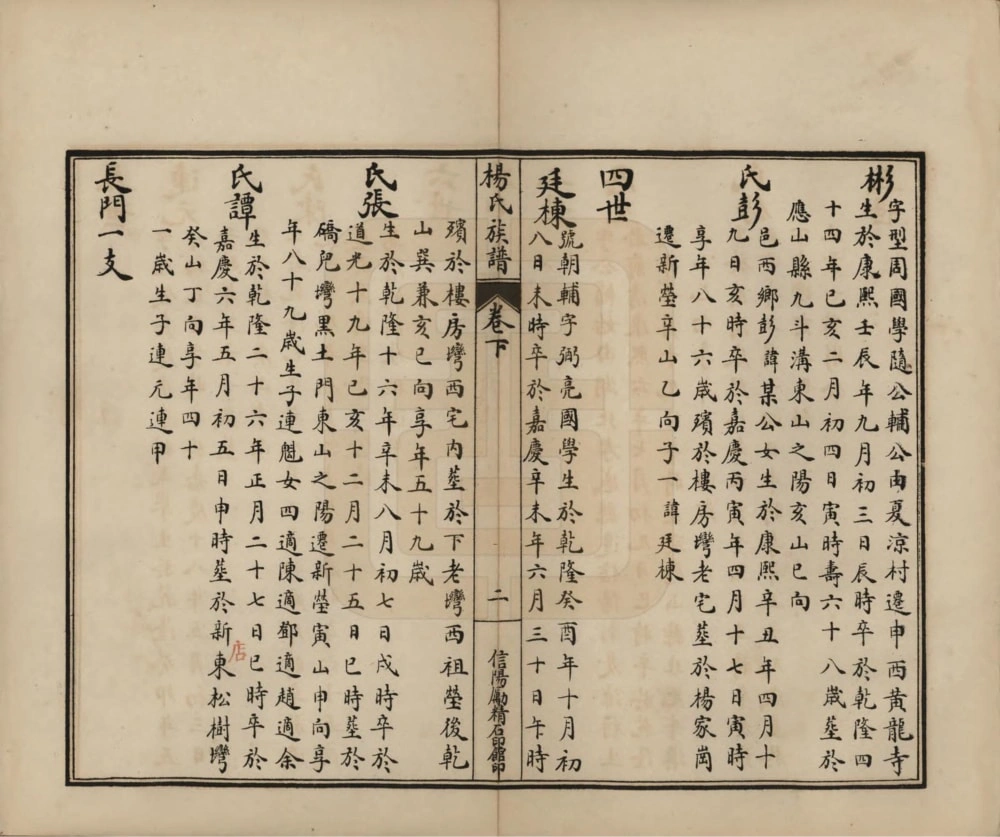 彬字型周國學隨公輔公由夏涼村遷申西黃龍寺
生於康熙壬辰年九月初三日辰時卒於乾隆四
十四年已亥二月初四日寅時壽六十八歲塟於
應山縣九斗溝東山之陽亥山巳向
氏彭邑西鄉彭諱某公女生於康熙辛丑年四月十
九日亥時卒於嘉慶丙寅年四月十七日寅時
享年八十六歲殯於樓房塆老宅塟於楊家崗
遷新塋辛山乙向子一諱廷棟
四世
廷棟號朝輔字弼亮國學生於乾隆癸酉年十月初
八日未時卒於嘉慶辛未年六月三十日午時
楊氏族譜
卷下
二
信陽勵精石印館印
殯於樓房塆西宅內塟於下老塆西祖塋後乾
山巽兼亥巳向享年五十九歲
氏張生於乾隆十六年辛未八月初七日戌時卒於
道光十九年已亥十二月二十五日巳時塟於
礄兒塆黑土門東山之陽遷新塋寅山申向享
年八十九歲生子連魁女四適陳適鄧適趙適余
氏譚生於乾隆二十六年正月二十七日巳時卒於
嘉慶六年五月初五日申時塟於新店東松樹塆
癸山丁向享年四十
一歲生子連元連甲
長門一支